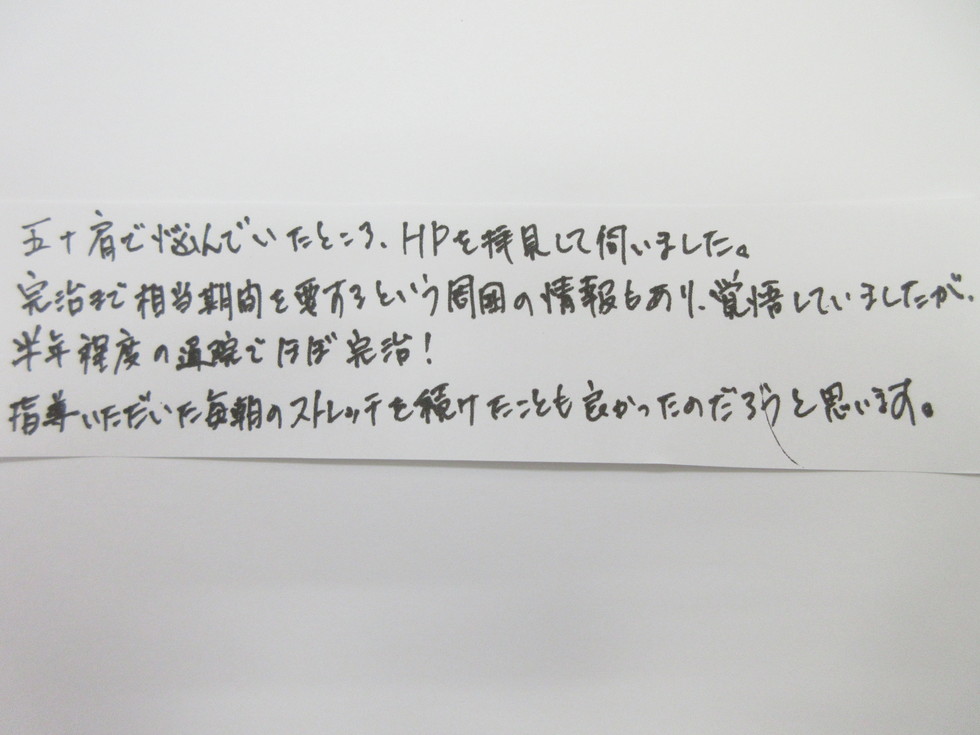 五十肩で悩んでいたところ、HPを拝見して伺いました。
完治まで相当期間を要するという周囲の情報もあり、覚悟していましたが、
半年程度の通院でほぼ完治!
指導いただいた毎朝のストレッチを続けたことも良かったのだろうと思います。